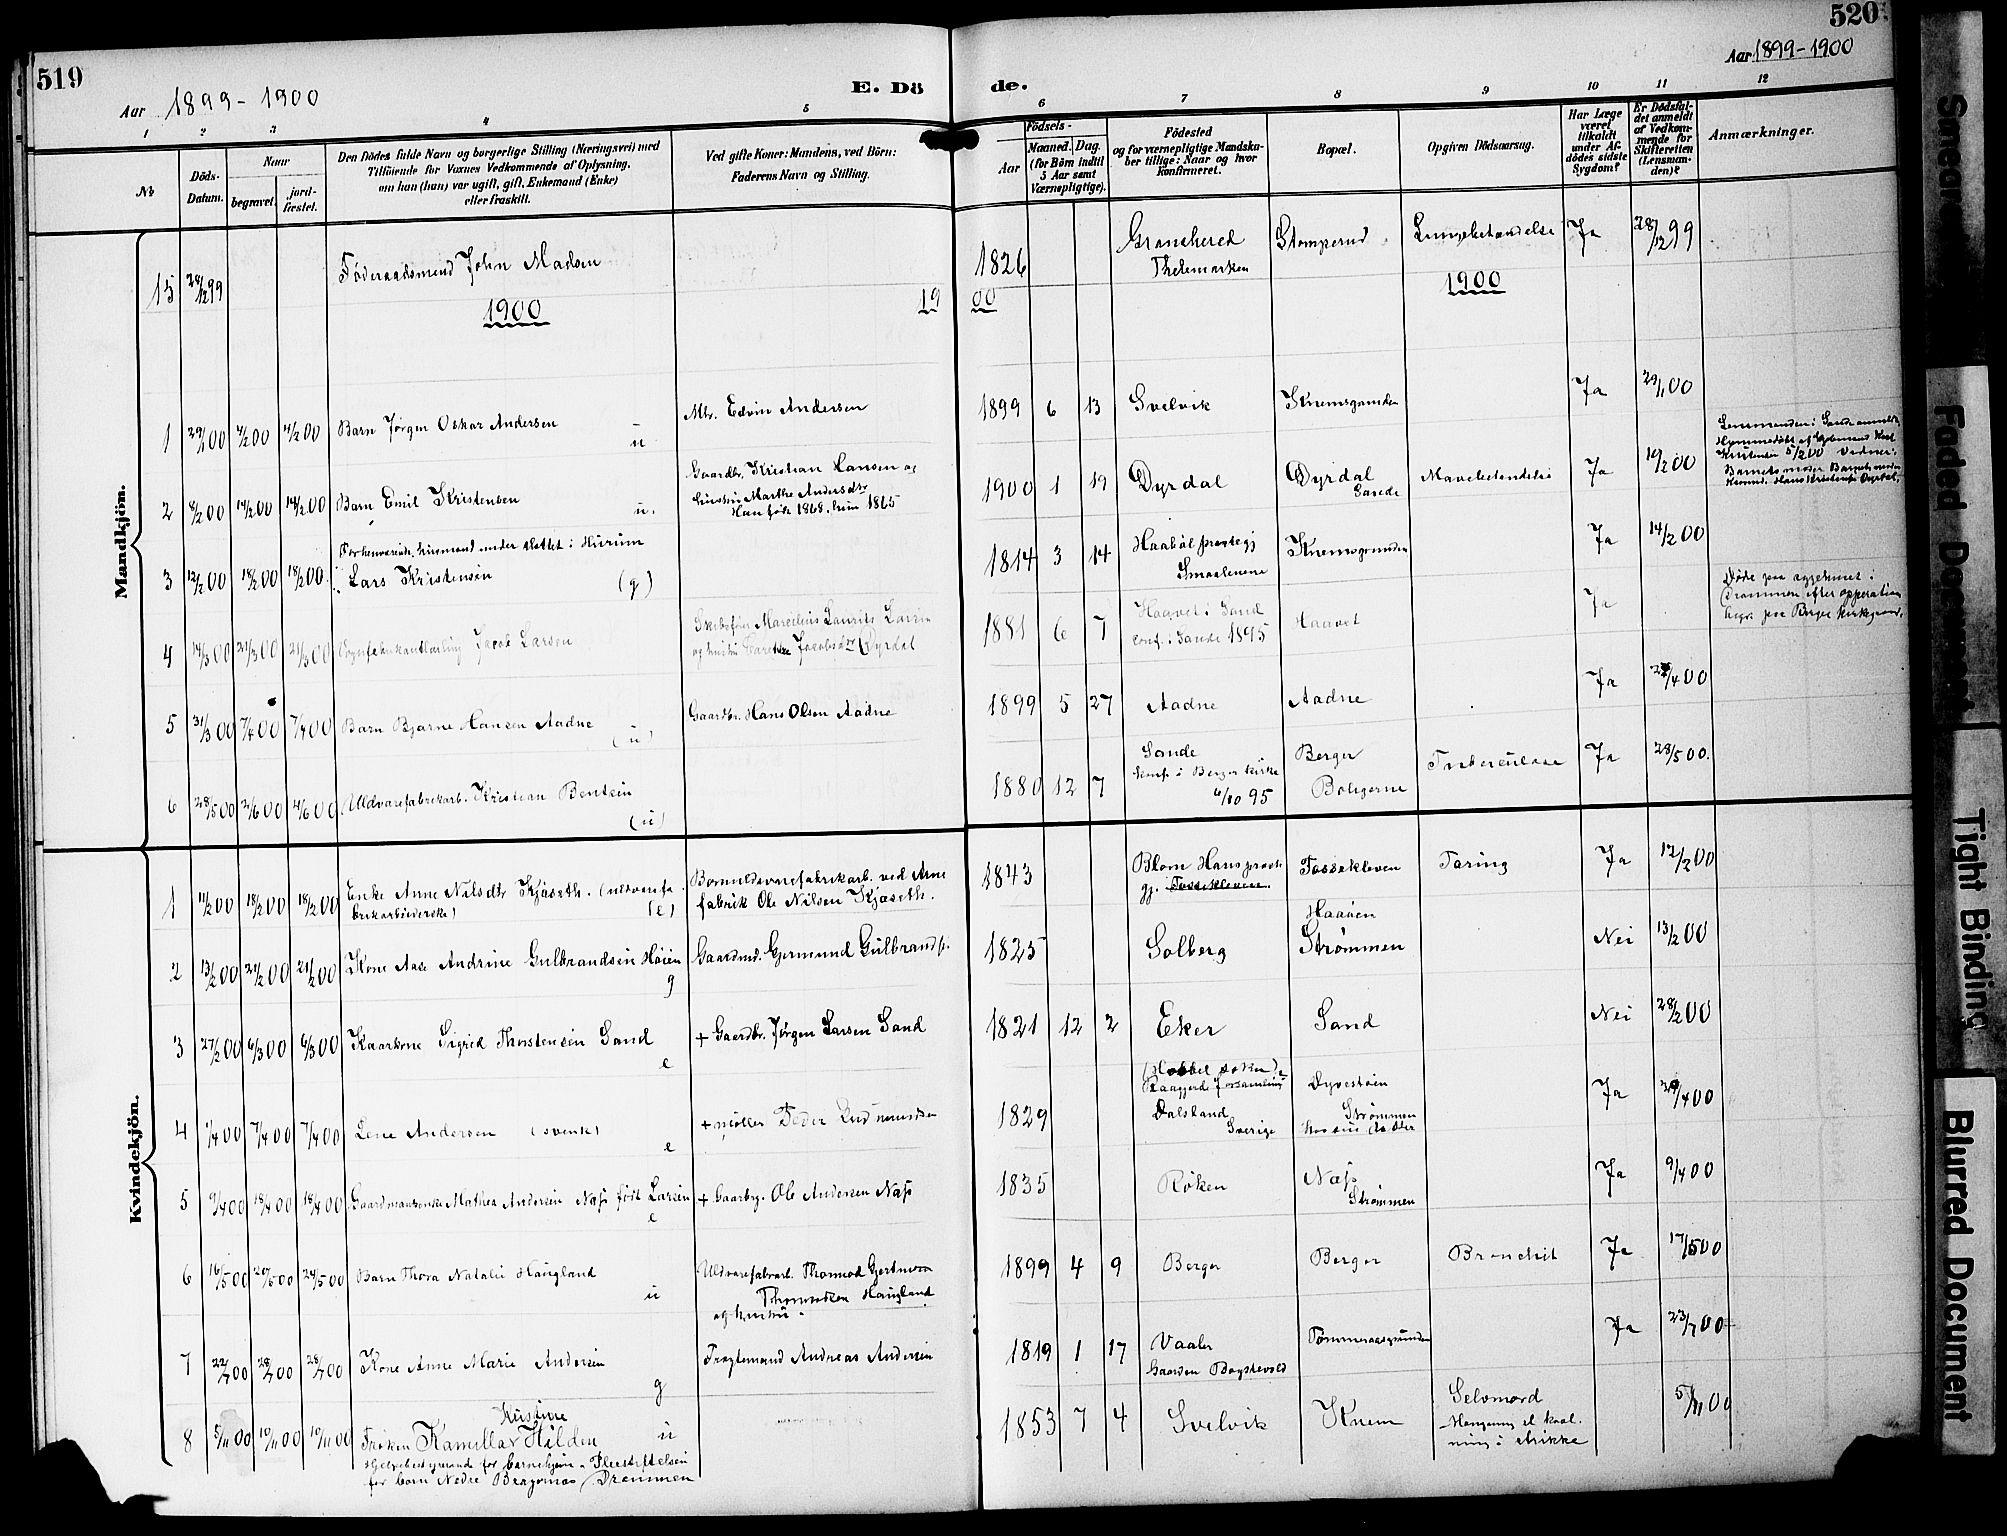 519
Aar 1899-1900
E. Dö
de.
520
Aar 1899-1900
1 2 3 4 5 6 7 8 9 10 11 12
No
Döds-
Datum.
Naar
begravet.
jord-
fæstet.
Den dödes fulde Navn og borgerlige Stilling (Næringsvei) med
Tilföiende for Voxnes Vedkommende af Oplysning,
om han (hun) var ugift, gift, Enkemand (Enke)
eller fraskilt.
Ved gifte Koner: Mandens, ved Börn:
Faderens Navn og Stilling.
Födsels-
Aar
Maaned. Dag.
(for Börn indtil
5 Aar samt
Værnepligtige).
Födested
og for værnepligtige Mandska-
ber tillige: Naar og hvor
konfirmeret.
Bopæl.
Opgiven Dödsaarsag.
Har Læge
været
tilkaldt
under Af-
dödes sidste
Sygdom?
Er Dödsfal-
det anmeldt
af Vedkom-
mende for
Skifteretten
(Lensman-
den)?
Anmærkninger.
Mandkjön.
15 28/12 99 Föderaadsmand John Madsen 1826 Granshered Thelemarken Stomperud Lungebetændelse Ja 28/12 99
1900 19 00 1900
1 29/1 00 4/2 00 4/2 00 Barn Jørgen Oskar Andersen u Mtr. Edvin Andersen 1899 6 13 Svelvik Knemsgrunden Ja 29/1 00
2 8/2 00 14/2 00 14/2 00 Barn Emil Kristensen u. Gaardbr. Kristian Hansen og
hustru Marthe Andersdtr
Han født 1868, hun 1865 1900 1 19 Dyrdal Dyrdal Sande Mavebetændelse Ja 19/2 00
Lensmanden i Sande anmeldt
3 12/2 00 18/2 00 18/2 00 Forhenværende husmand under slottet i Hurum
Lars Kristensen (g) 1814 3 14 Haabøl prestegj Smaalenene Knemsgrunden Ja 14/2 00
4 14/3 00 21/3 00 21/3 00 Vognfabrikantlærling Jacob Larsen Marcelius Laurits Larsen 1881 6 7 Haavet i Sand
conf. i Sande 1895 Haavet Ja
Døde paa sygehuset i
Drammen efter opperation
begr. paa Berger kirkegaard.
5 31/3 00 7/4 00 7/4 00 Barn Bjarne Hansen Aadne (u) Gaardbr. Hans Olsen Aadne 1899 5 27 Aadne Aadne Ja 2/4 00
6 28/5 00 2/6 00 4/6 00 Uldvarefabrikarb. Kristian Bentsen (u) 1880 12 7 Sande
konf. i Berger kirke
6/10 95 Berger Boligerne Tuberculose Ja 28/5 00.
Kvindekjön.
1 11/2 00 18/2 00 18/2 00 Enke Anne Nilsdtr Kjøseth. (uldvarefa-
brikarbeiderske) (e) Bomuldsvarefabrikarb. ved Arne
fabrik Ole Nilsen Kjøseth. 1843 Fossekleven Tæring Ja 12/2 00
2 13/2 00 21/2 00 21/2 00 Kone Aase Andrine Gulbrandsen Høien g Gaardmd. Gjermund Gulbrands. 1825 Solberg Haaøen Strømmen Nei 13/2 00
3 27/2 00 6/3 00 6/3 00 Kaarkone Sigrid Thorstensen Sand e + Gaardbr. Jørgen Larsen Sand 1821 12 2 Eker Sand Nei 28/2 00
4 1/4 00 7/4 00 7/4 00 Lene Andersen (svensk) e + møller Peder 1829 Dalsland Sverige Dyvestøen Strømmen Ja
5 9/4 00 18/4 00 18/4 00 Gaardmandsenke Mathea Andersen Næss født Larsen e + Gaardbrg. Ole Andersen Næss 1835 Røken Næss Strømmen Ja 9/4 00
6 16/5 00 24/5 00 24/5 00 Barn Thora Natalie Haugland u Uldvarefabrarb. Thormod Gjertmon
Thormodsen Haugland
og hustru 1899 4 9 Berger Berger Bronchit Ja 17/5 00
7 22/7 00 28/7 00 28/7 00 Kone Anne Marie Andersen g Fragtemand Andreas Andersen 1819 1 17 Vaaler
Gaarden Tømmeraasgrunden Ja 23/7 00
8 5/11 00 10/11 00 10/11 00 Frøken Kamilla Kristine Hilden u 1853 7 4 Svelvik Knem Selvmord 5/11 00
for børn Nedre Bragernes Drammen
Smeared
Faded Document
Tight Binding
Blurred Document